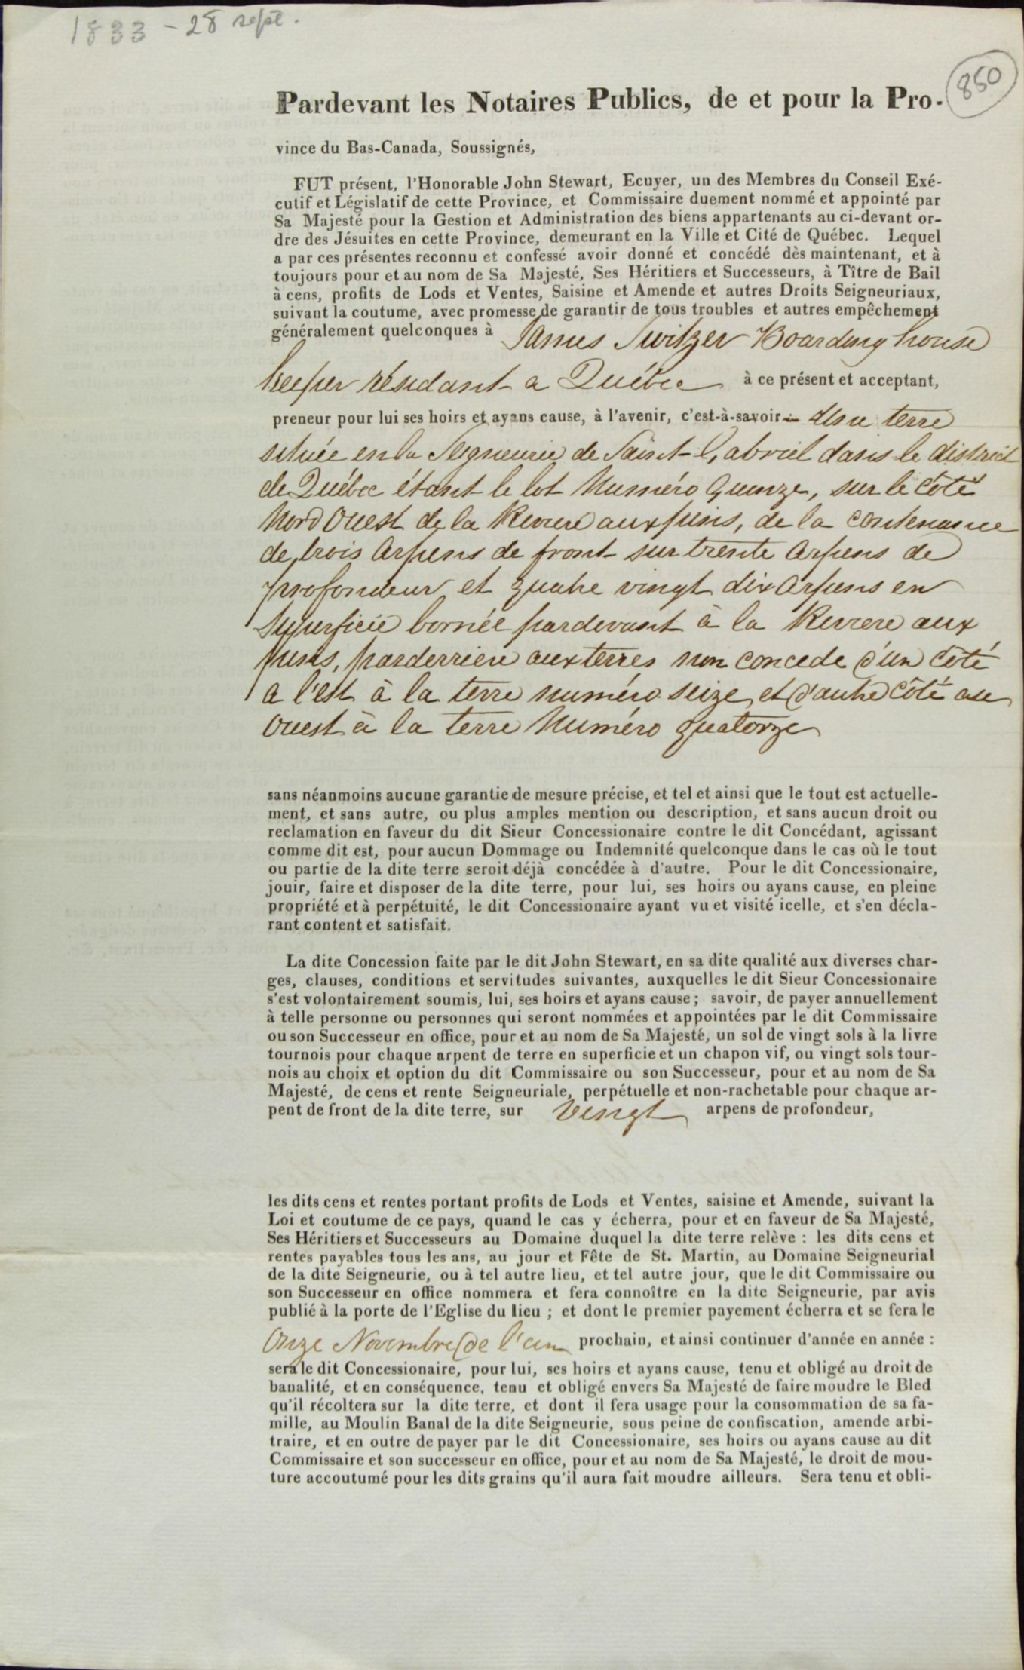 1833 - 28 sept.
850
Pardevant les Notaires Publics, de et pour la Pro-
vince du Bas-Canada, Soussignés,
FUT présent, l'Honorable John Stewart, Ecuyer, un des Membres du Conseil Exé-
cutif et Législatif de cette Province, et Commissaire duement nommé et appointé par
Sa Majesté pour la Gestion et Administration des biens appartenants au ci-devant or-
dre des Jésuites en cette Province, demeurant en la Ville et Cité de Québec. Lequel
a par ces présentes reconnu et confessé avoir donné et concédé dès maintenant, et à
toujours pour et au nom de Sa Majesté, Ses Héritiers et Successeurs, à Titre de Bail
à cens, profits de Lods et Ventes, Saisine et Amende et autres Droits Seigneuriaux,
suivant la coutume, avec promesse de garantir de tous troubles et autres empêchement
généralement quelconques à James Switzer Boarding house
keeper résidant a Québec à ce présent et acceptant,
preneur pour lui ses hoirs et ayans cause, à l'avenir, c'est-à-savoir— Une terre
située en la Seigneurie de Saint Gabriel dans le district
de Québec étant le lot Numéro Quinze, sur le côté
Nord Ouest de la Riviere aux pins, de la contenance
de trois Arpens de front sur trente Arpens de
profondeur et quatre vingt dix Arpens en
Superficie bornée pardevant à la Riviere aux
pins, parderriere aux terres non concede d'un côté
a l'est à la terre numéro seize, et d'autre côté au
Ouest à la terre Numéro quatorze
sans néanmoins aucune garantie de mesure précise, et tel et ainsi que le tout est actuelle-
ment, et sans autre, ou plus amples mention ou description, et sans aucun droit ou
reclamation en faveur du dit Sieur Concessionaire contre le dit Concédant, agissant
comme dit est, pour aucun Dommage ou Indemnité quelconque dans le cas où le tout
ou partie de la dite terre seroit déjà concédée à d'autre. Pour le dit Concessionaire,
jouir, faire et disposer de la dite terre, pour lui, ses hoirs ou ayans cause, en pleine
propriété et à perpétuité, le dit Concessionaire ayant vu et visité icelle, et s'en décla-
rant content et satisfait.
La dite Concession faite par le dit John Stewart, en sa dite qualité aux diverses char-
ges, clauses, conditions et servitudes suivantes, auxquelles le dit Sieur Concessionaire
s'est volontairement soumis, lui, ses hoirs et ayans cause; savoir, de payer annuellement
à telle personne ou personnes qui seront nommées et appointées par le dit Commissaire
ou son Successeur en office, pour et au nom de Sa Majesté, un sol de vingt sols à la livre
tournois pour chaque arpent de terre en superficie et un chapon vif, ou vingt sols tour-
nois au choix et option du dit Commissaire ou son Successeur, pour et au nom de Sa
Majesté, de cens et rente Seigneuriale, perpétuelle et non-rachetable pour chaque ar-
pent de front de la dite terre, sur vingt arpens de profondeur,
les dits cens et rentes portant profits de Lods et Ventes, saisine et Amende, suivant la
Loi et coutume de ce pays, quand le cas y écherra, pour et en faveur de Sa Majesté,
Ses Héritiers et Successeurs au Domaine duquel la dite terre relève : les dits cens et
rentes payables tous les ans, au jour et Fête de St. Martin, au Domaine Seigneurial
de la dite Seigneurie, ou à tel autre lieu, et tel autre jour, que le dit Commissaire ou
son Successeur en office nommera et fera connoître en la dite Seigneurie, par avis
publié à la porte de l'Eglise du lieu ; et dont le premier payement écherra et se fera le
Onze Novembre de l'an prochain, et ainsi continuer d'année en année :
sera le dit Concessionaire, pour lui, ses hoirs et ayans cause, tenu et obligé au droit de
banalité, et en conséquence, tenu et obligé envers Sa Majesté de faire moudre le Bled
qu'il récoltera sur la dite terre, et dont il fera usage pour la consommation de sa fa-
mille, au Moulin Banal de la dite Seigneurie, sous peine de confiscation, amende arbi-
traire, et en outre de payer par le dit Concessionaire, ses hoirs ou ayans cause au dit
Commissaire et son successeur en office, pour et au nom de Sa Majesté, le droit de mou-
ture accoutumé pour les dits grains qu'il aura fait moudre ailleurs. Sera tenu et obli-